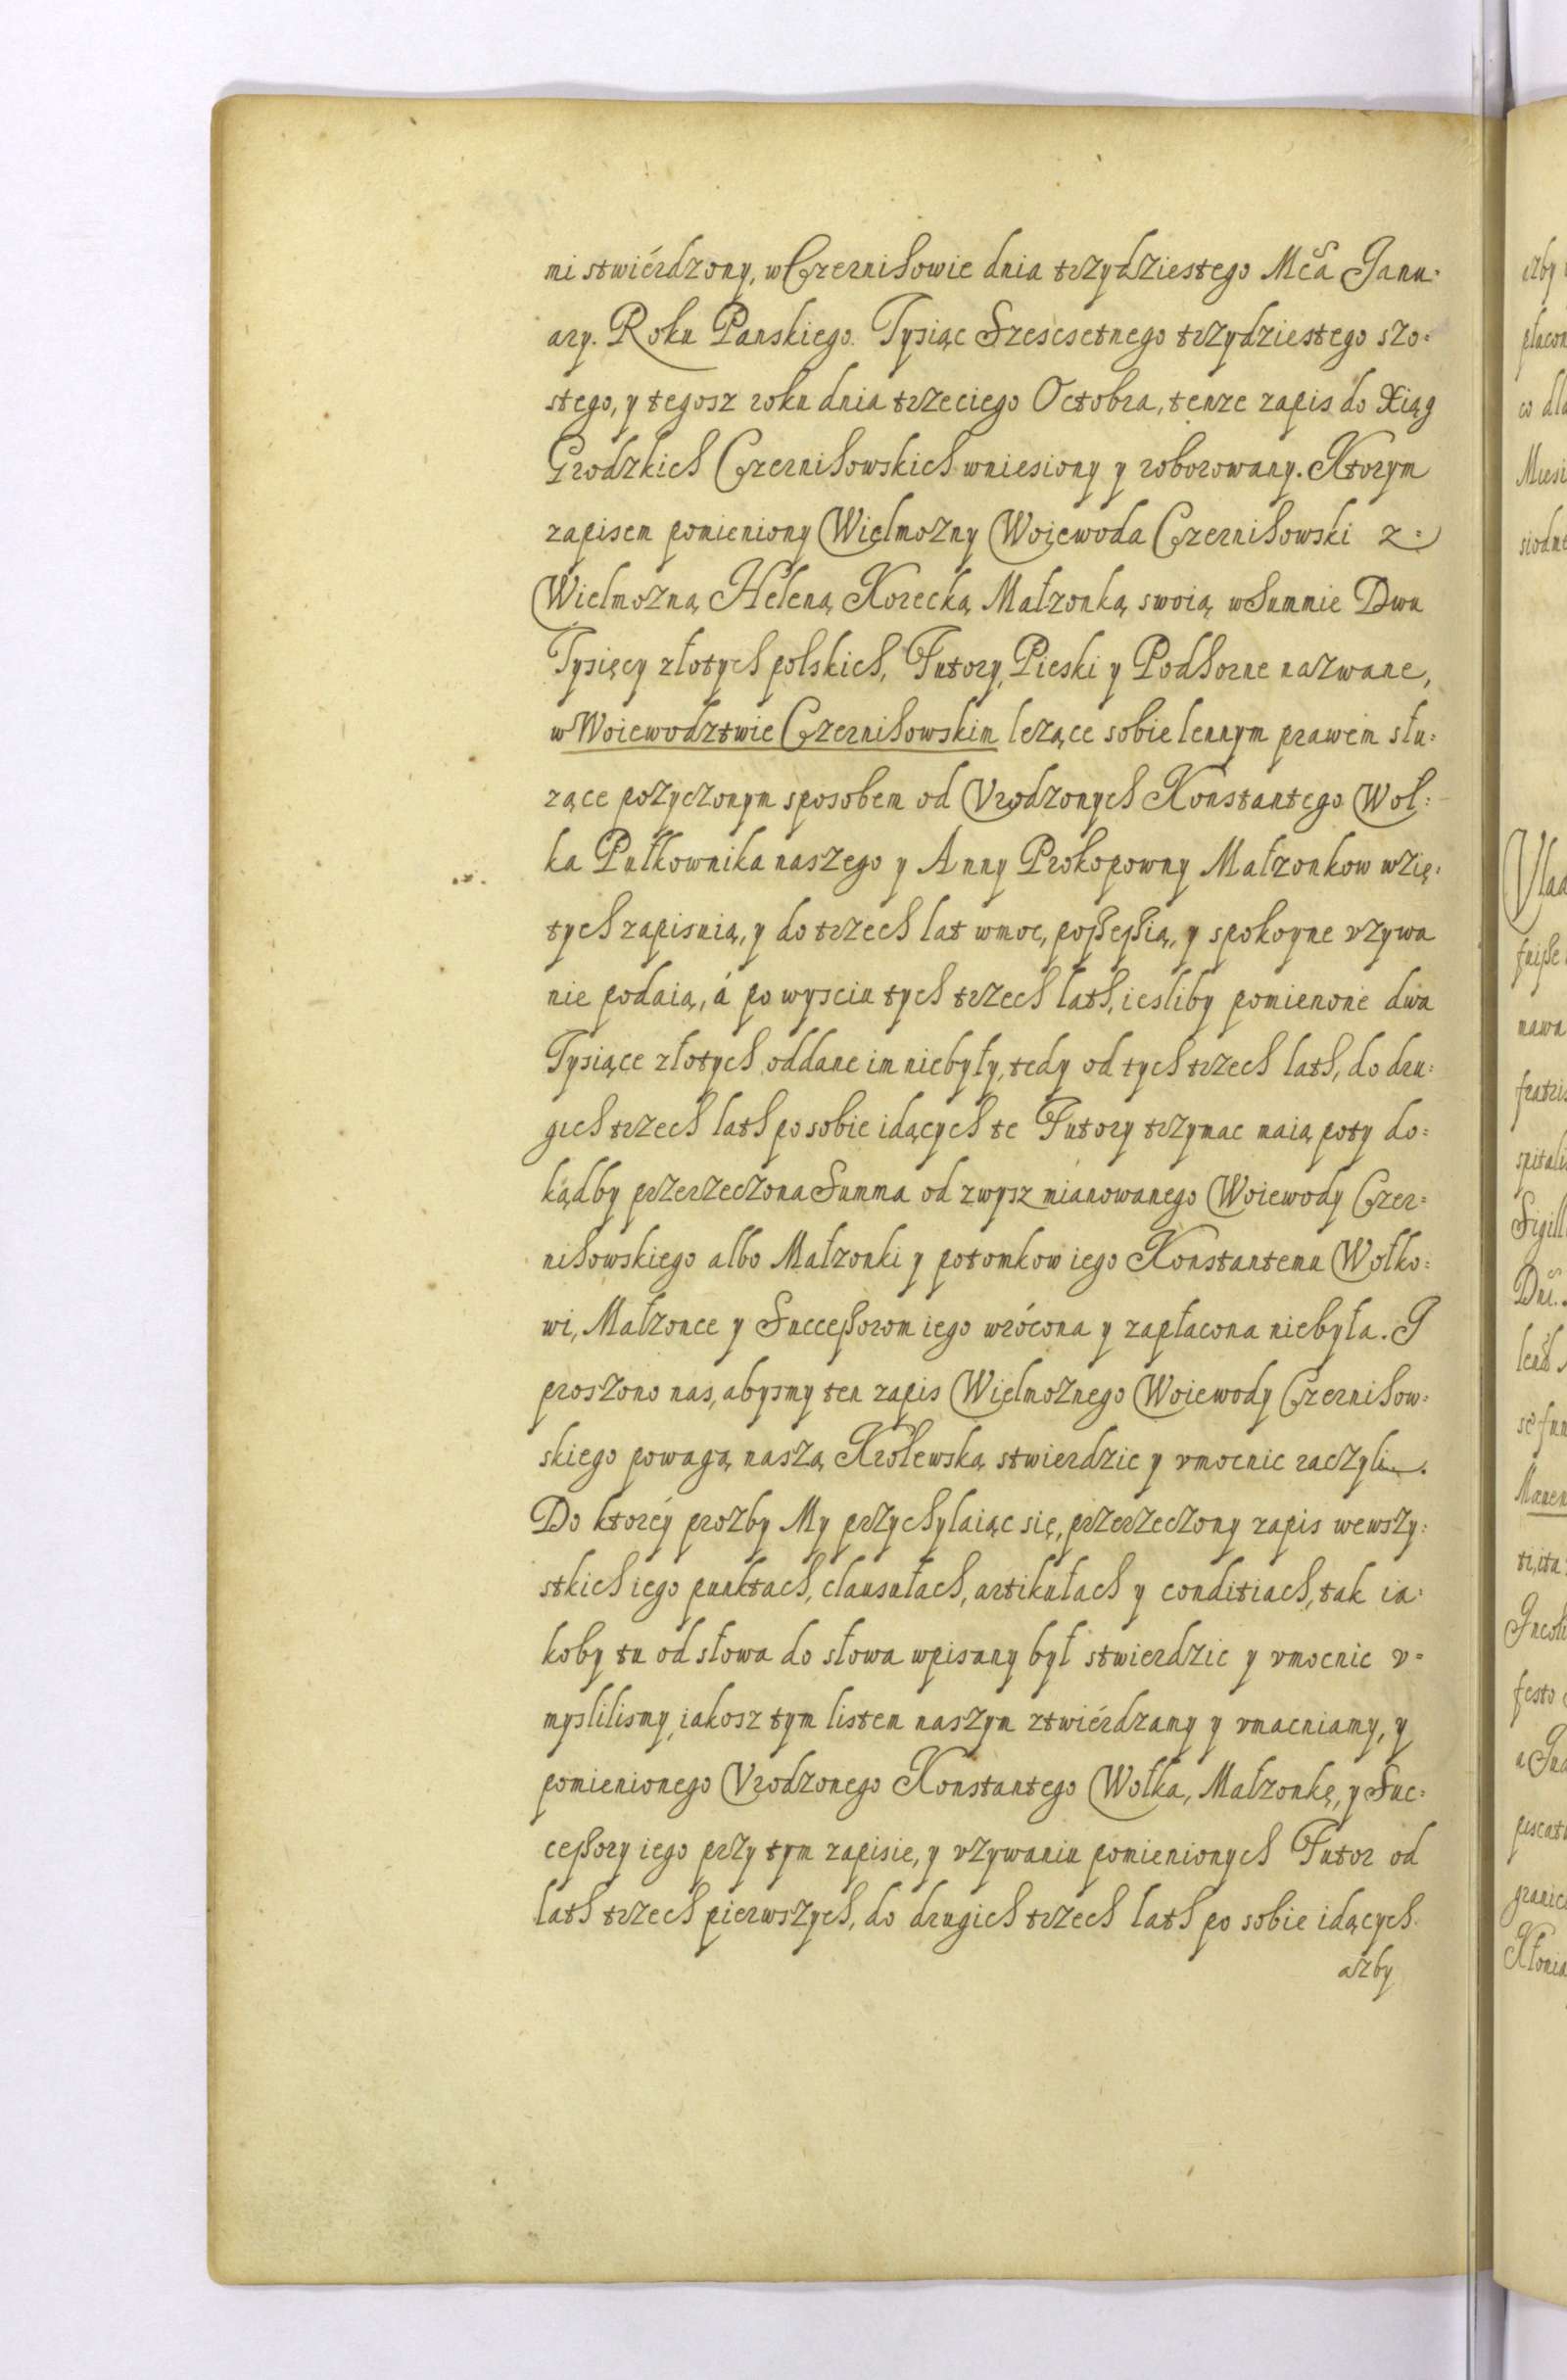 mi stwiérdzony, w Czernihowie dnia trzydziestego Mca Janu:
ary. Roku Panskiego. Tysiąc Szescsetnego trzydziestego szo:
stego, y tegosz roku dnia trzeciego Octobra, tenze zapis do Xiąg
Grodzkich Czernihowskich wniesiony y roborowany. Ktorym
zapisem pomieniony Wielmozny Woiewoda Czernihowski z:
Wielmozną Heleną Korecką Małzonką swoią w Summie Dwu
Tysięcy złotych polskich, Futory, Pieski y Podhorne nazwane,
w Woiewodztwie Czernihowskim lezące sobie lennym prawem słu:
zące pozyczonym sposobem od Vrodzonych Konstantego Woł:
ka Pułkownika naszego y Anny Prokopowny Małzonkow wzię:
tych zapisuią, y do trzech lat w moc, possessią, y spokoyne vzywa
nie podaią, á po wysciu tych trzech lath, iesliby pomienone dwa
Tysiące złotych oddane im niebyły, tedy od tych trzech lath, do dru:
gich trzech lath po sobie idących te Futory trzymac maią poty do:
kądby przerzeczona Summa od zwysz mianowanego Woiewody Czer:
nihowskiego albo Małzonki y potomkow iego Konstantemu Wołko:
wi, Małzonce y Successorom iego wrócona y zapłacona niebyła. J
proszono nas, abysmy ten zapis Wielmoznego Woiewody Czernihow:
skiego powagą naszą Krolewską stwierdzic y vmocnic raczyli.
Do ktoréy prozby My przychylaiąc się, przerzeczony zapis wewszy:
stkich iego punktach, clausułach, artikułach y conditiach, tak ia:
koby tu od słowa do słowa wpisany był stwierdzic y vmocnic v:
myslilismy, iakosz tym listem naszym ztwiérdzamy y vmacniamy, y
pomienionego Vrodzonego Konstantego Wołka, Małzonkę, y Suc:
cessory iego przy tym zapisie, y vzywaniu pomienionych Futor od
lath trzech pierwszych, do drugich trzech lath po sobie idących
azby